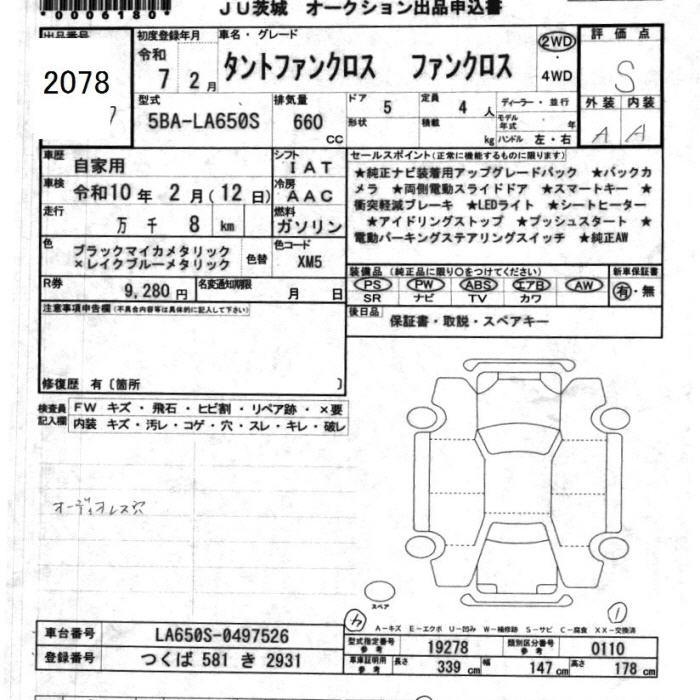 *0006180*
JU茨城 オークション出品申込書
出品番号
2078
初度登録年月
令和
7 2月
車名・グレード
タントファンクロス ファンクロス
2WD
・
4WD
評価点
S
外装 内装
A A
型式
5BA-LA650S
排気量
660
CC
ドア
5
定員
4 人
形状
積載
kg
ディーラー・並行
モデル年式 年
ハンドル 左・右
車歴
自家用
シフト
IAT
車検
令和10年 2月(12日)
冷房
AAC
走行
万 千 8 km
燃料
ガソリン
色
ブラックマイカメタリック
×レイクブルーメタリック
色替
色コード
XM5
R券
9,280円
名変通知期限
月 日
セールスポイント(正常に機能するものに限ります)
★純正ナビ装着用アップグレードパック ★バックカ
メラ ★両側電動スライドドア ★スマートキー ★
衝突軽減ブレーキ ★LEDライト ★シートヒーター
★アイドリングストップ ★プッシュスタート ★
電動パーキングステアリングスイッチ ★純正AW
装備品(純正品に限り○をつけてください)
PS PW ABS エアB AW
SR ナビ TV カワ
新車保証書
有・無
後日品
保証書・取説・スペアキー
注意事項申告欄(不具合内容等は具体的に記入して下さい)
修復歴 有〔箇所 〕
検査員
記入欄
FW キズ・飛石・ヒビ割・リペア跡・×要
内装 キズ・汚レ・コゲ・穴・スレ・キレ・破レ
オーディオレス穴
スペア
4
1
A-キズ E-エクボ U-凹み W-補修跡 S-サビ C-腐食 XX-交換済
車台番号 LA650S-0497526
登録番号 つくば 581 き 2931
型式指定番号
参考
19278
類別区分番号
参考
0110
車庫証明用
参考
長さ 339 cm 幅 147 cm 高さ 178 cm